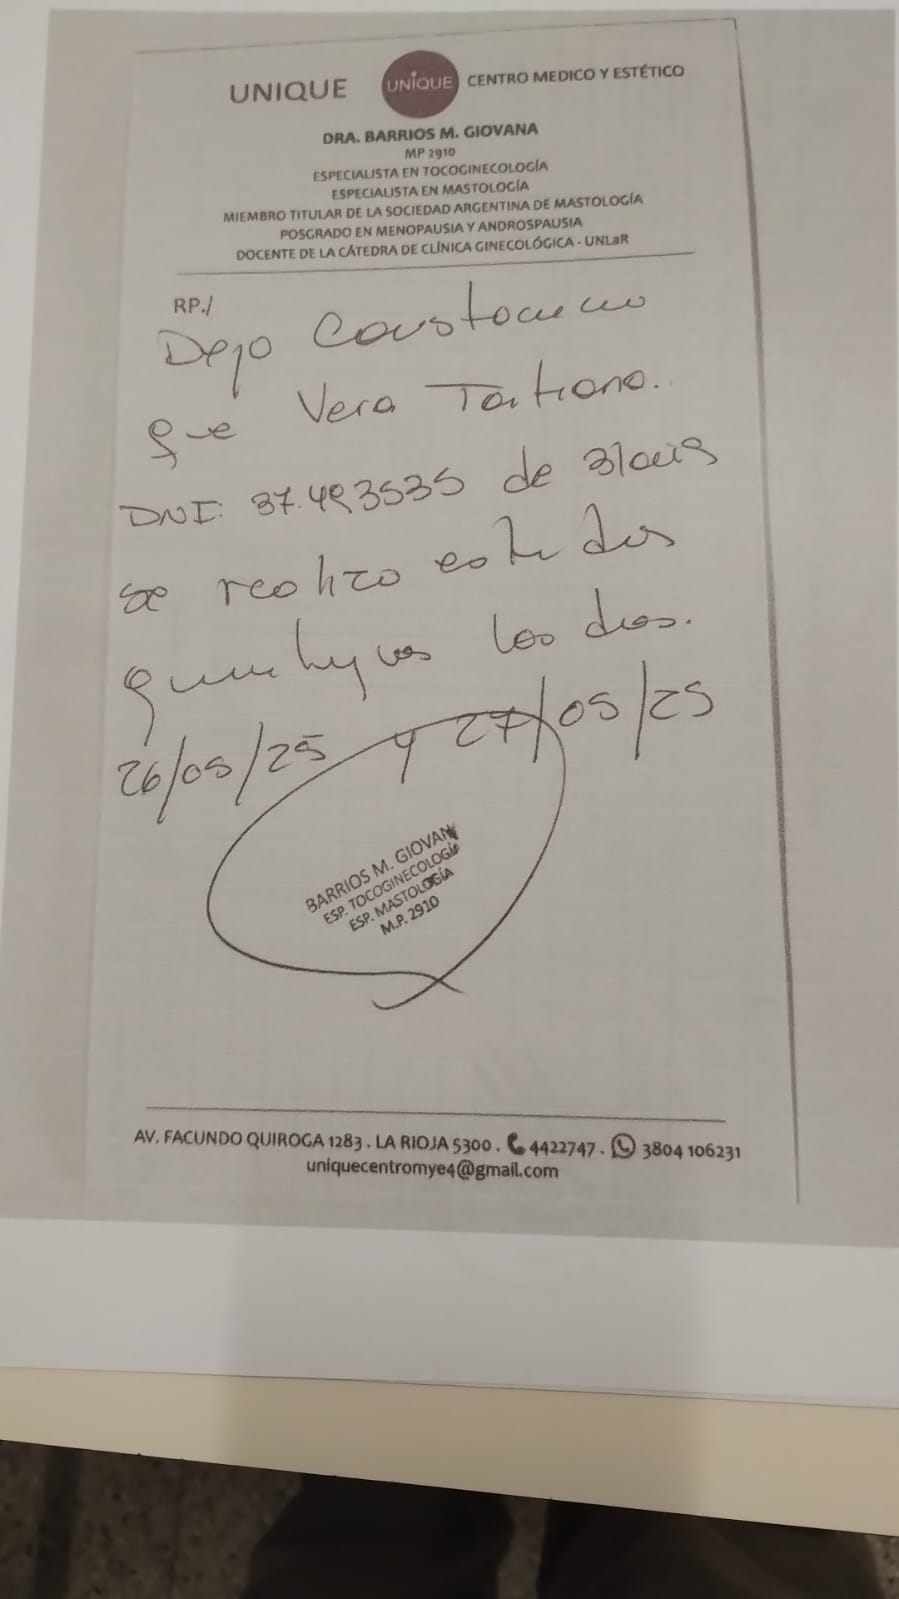 UNIQUE UNIQUE CENTRO MEDICO Y ESTÉTICO
DRA. BARRIOS M. GIOVANA
MP 2910
ESPECIALISTA EN TOCOGINECOLOGÍA
ESPECIALISTA EN MASTOLOGÍA
MIEMBRO TITULAR DE LA SOCIEDAD ARGENTINA DE MASTOLOGÍA
POSGRADO EN MENOPAUSIA Y ANDROSPAUSIA
DOCENTE DE LA CÁTEDRA DE CLÍNICA GINECOLÓGICA - UNLaR
RP./
Dejo Constancia
que Vera Tatiana.
DNI: 37.493535 de 31 años
se realizo estudios
los dias.
26/05/25 y 27/05/25
BARRIOS M. GIOVANA
ESP. TOCOGINECOLOGÍA
ESP. MASTOLOGÍA
M.P. 2910
AV. FACUNDO QUIROGA 1283 . LA RIOJA 5300 . 4422747 . 3804 106231
uniquecentromye4@gmail.com